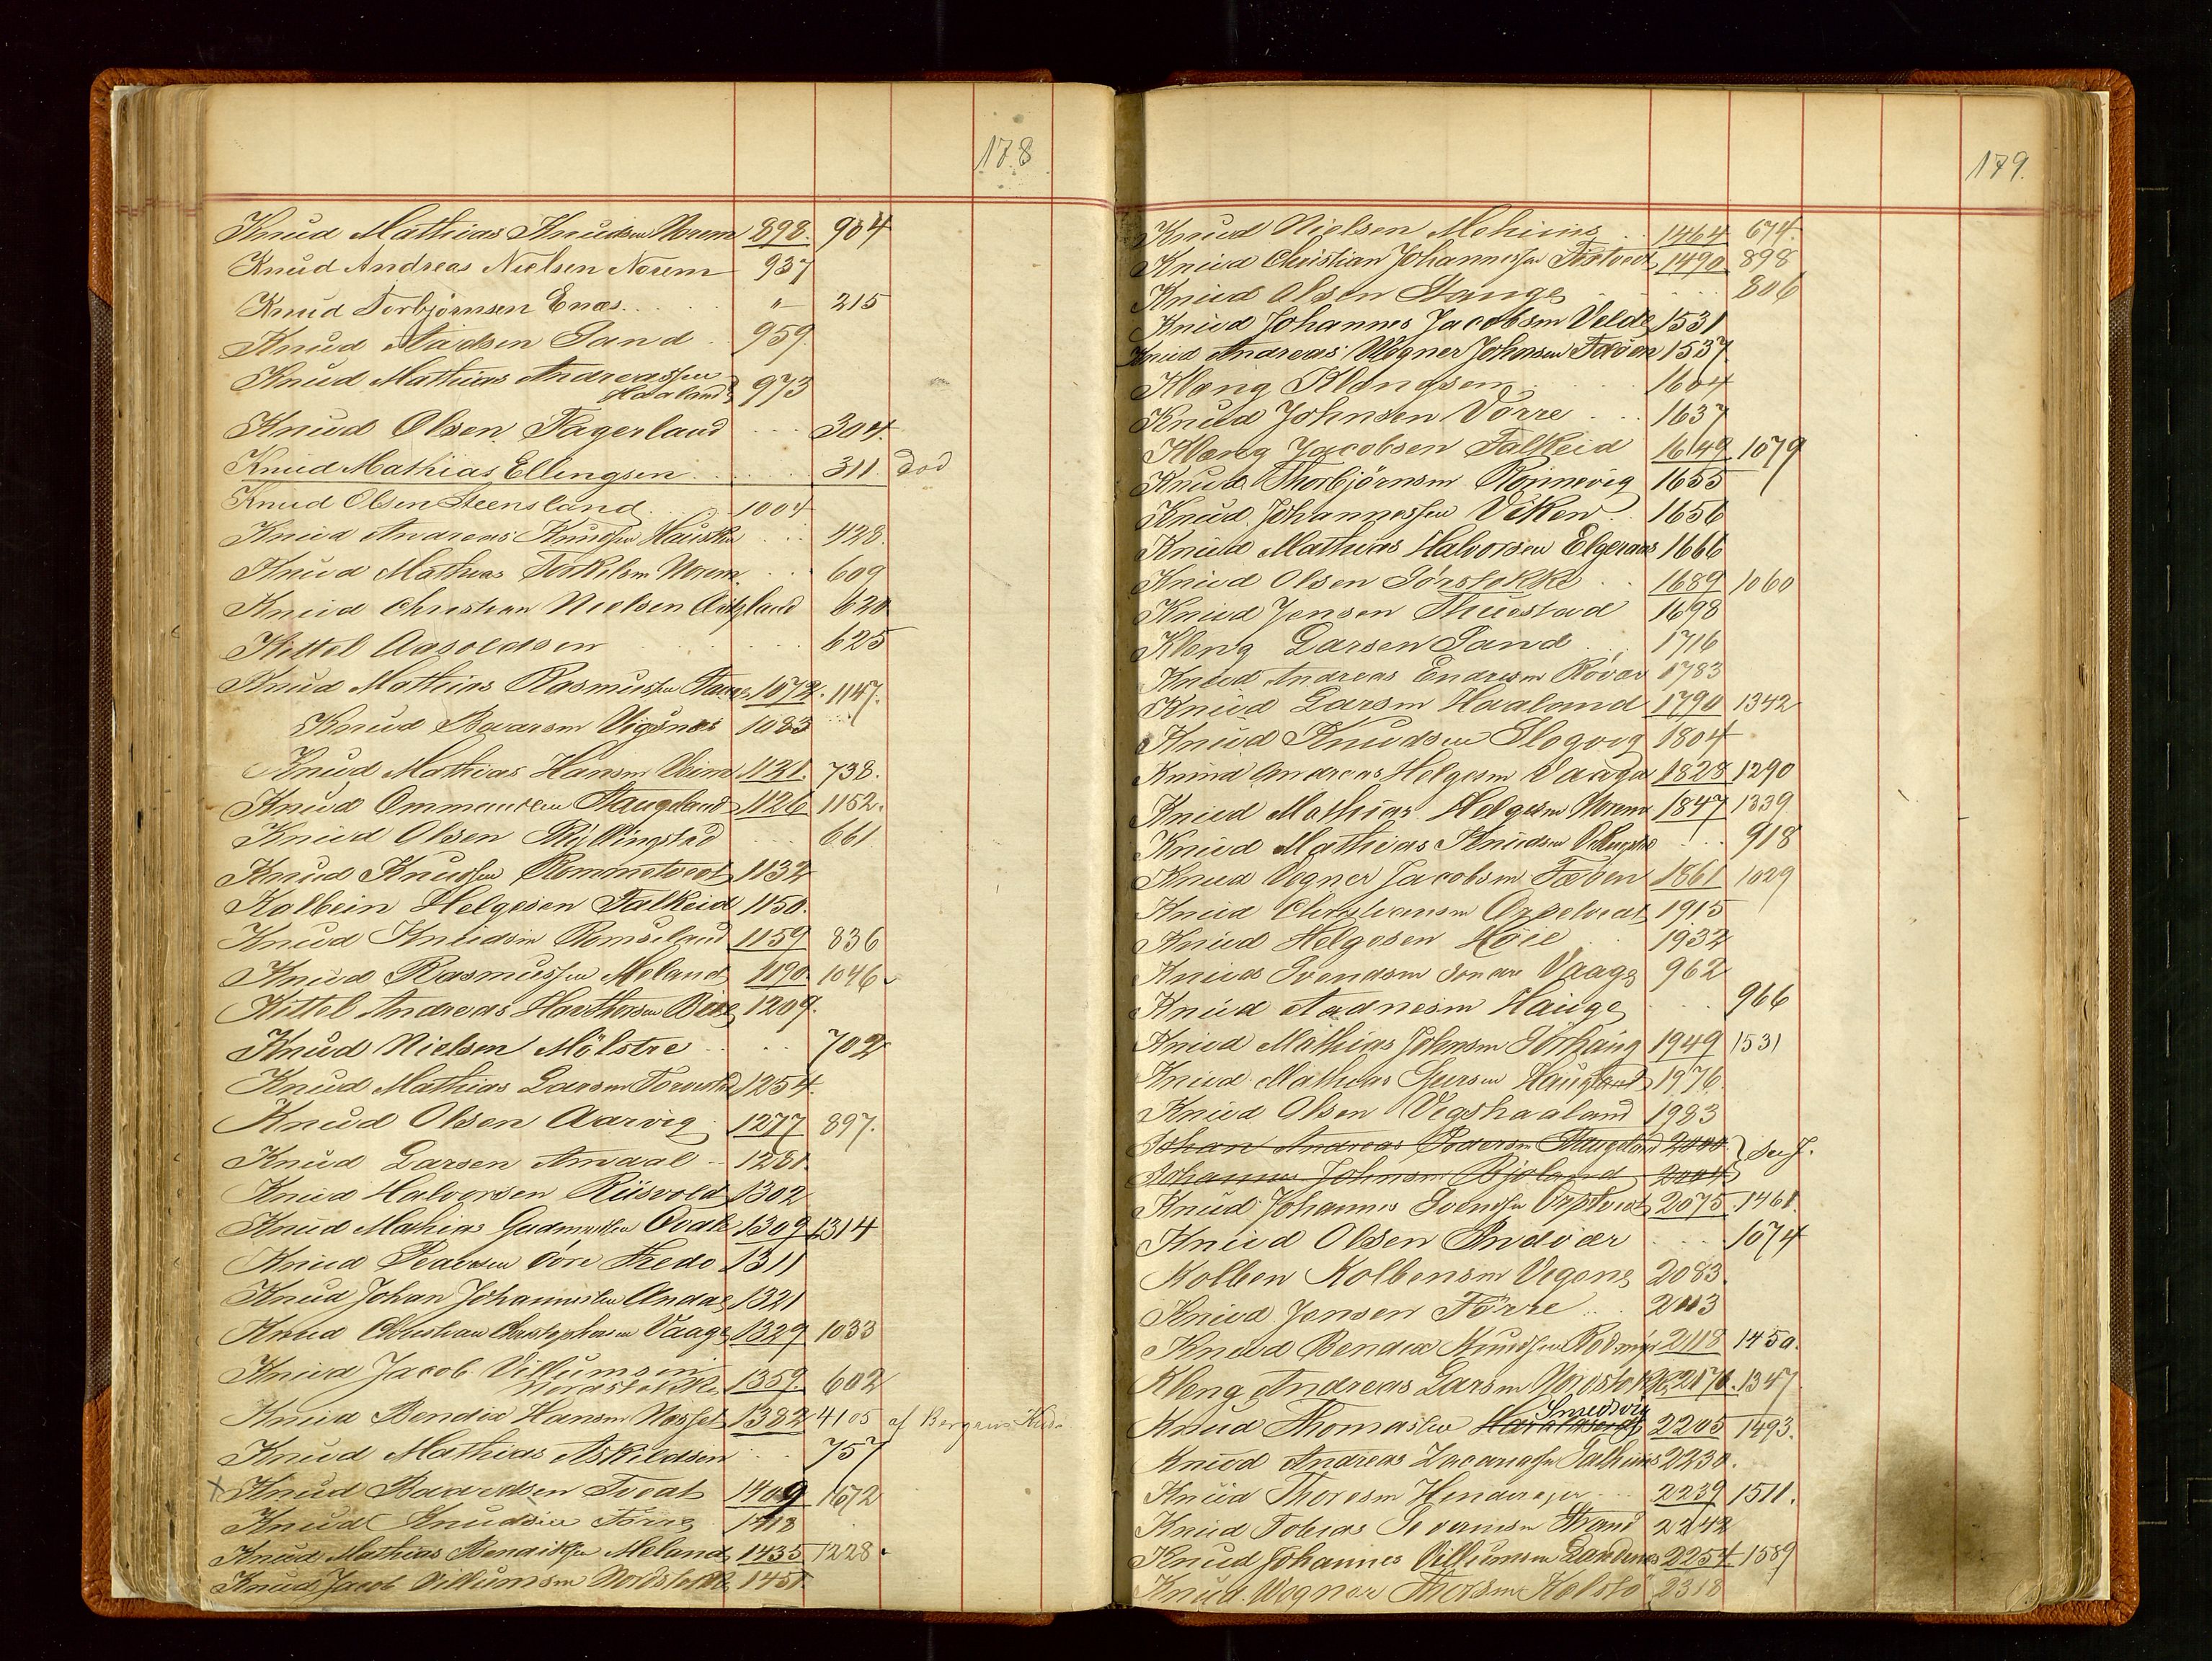 178
Knud Mathias Knudsen Norem 898. 904
Knud Andreas Nielsen Norem 937
Knud Torbjørnsen Enæs. . . . " 215
Knud Aadsen Sand . 959.
Knud Mathias Andreassen
Haaland 973
Knud Olsen Fagerland . . . 304.
Knud Mathias Ellingsen . . . . . 311. død
Knud Olsen Steensland . . 1004
Knud Andreas Knudsen Hausken . . . 428.
Knud Mathias Torkelsen Norem. . . 609
Knud Christian Nielsen 620
Kittel Aasoldsen . . . . . 625
Knud Mathias Rasmussen Stange 1072. 1147.
Knud Baarsen Vigsnæs 1083
Knud Mathias Hansen 1121. 738.
Knud Ommundsen Staugeland 1126 1152.
Knud Olsen . . . 661.
Knud Knudsen Rommetvedt 1132
Kolbein Helgesen Falkeid 1150.
Knud Knudsen Romseland 1159 836
Knud Rasmussen Meland 1190. 1046
Kittel Andreas 1209.
Knud Nielsen Mölstre . . . . 702
Knud Mathias Larsen 1254.
Knud Olsen Aarvig . 1277 897.
Knud Larsen Amdal -- 1281.
Knud Halvorsen Riisvold 1302
Knud Mathias Gudmundsen 1309 1314
Knud Pedersen 1311
Knud Johan Johannessen Andaa 1321
Knud Christian Christophersen Vaage 1329 1033
Knud Jacob Villumsen
Nordstokke 1359. 602
Knud Bendix Hansen 1382 4105 af Bergens
Knud Mathias Askildsen . . 757
x Knud Baardsen Tveat 1409 1672
Knud Knudsen 1418
Knud Mathias Bendiksen Meland 1435 1228.
Knud Jacob Villumsen Nordstokke 1451.
179.
Knud Nielsen . . 1464 674.
Knud Christian Johannessen Tistvedt 1490 898
Knud Olsen Stange . . . . . 806
Knud Johannes Jacobsen Velde 1531
Knud Andreas Wegner Johnsen 1537
Klæng Klængsen . . . 1604
Knud Johnsen Vörre . . . 1637
Klæng Jacobsen Falkeid 1649 1079
Knud Thorbjørnsen Rönnevig 1655
Knud Johannessen Viken . . 1656
Knud Mathias Halvorsen Elgeraas 1666
Knud Olsen Sörstokke . . 1689 1060
Knud Jensen Thuestad 1698
Klæng Larsen Sand . . . 1716
Knud Andreas Endresen Røvær 1783
Knud Larsen Haaland 1790 1342
Knud Knudsen Slogvig 1804
Knud Andreas Helgesen Vaaga 1828 1290
Knud Mathias Helgesen Norem 1847 1339
Knud Mathias Knudsen . . . 918
Knud Vegner Jacobsen 1861 1029
Knud Christiansen 1915
Knud Helgesen Høie . 1932
Knud Svendsen Vaage 962
Knud Aadnesen Hauge . . . 966
Knud Mathias Johnsen Sörhaug 1949 1531
Knud Mathias Haugland 1976.
Knud Olsen Vigshaaland 1983
Johan Andreas Pedersen Staugeland 2000. } See J.
Johannes Johnsen Bjoland 2004
Knud Johannes Svendsen 2075 1461.
Knud Olsen Indvær . . . 1074
Kolben Kolbensen 2083.
Knud Jensen Förre . . 2113
Knud Bendix Knudsen 2118 1450.
Kleng Andreas Larsen Nordstokke 2170. 1347
Smedvig
Knud Thomassen 2205 1493.
Knud Andreas 2230.
Knud Thoresen . . . 2239 1511.
Knud Tobias Severinsen Strand 2242
Knud Johannes Villumsen 2254 1589
Knud Wegner Thorsen Kolstö 2318